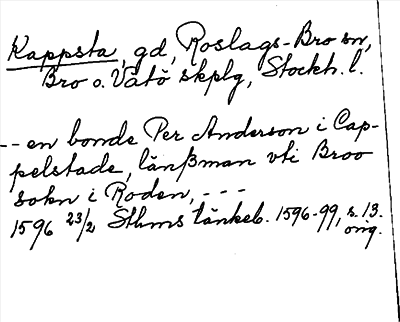 Kappsta, gd, Roslags-Bro sn,
Bro o. Vätö skplg, Stockh. l.
-- en bonde Per Anderson i Cap-
pelstade, länßman vti Broo
sokn i Roden, ---
1596 23/2 Sthms tänkeb. 1596-99, s. 13.
orig.